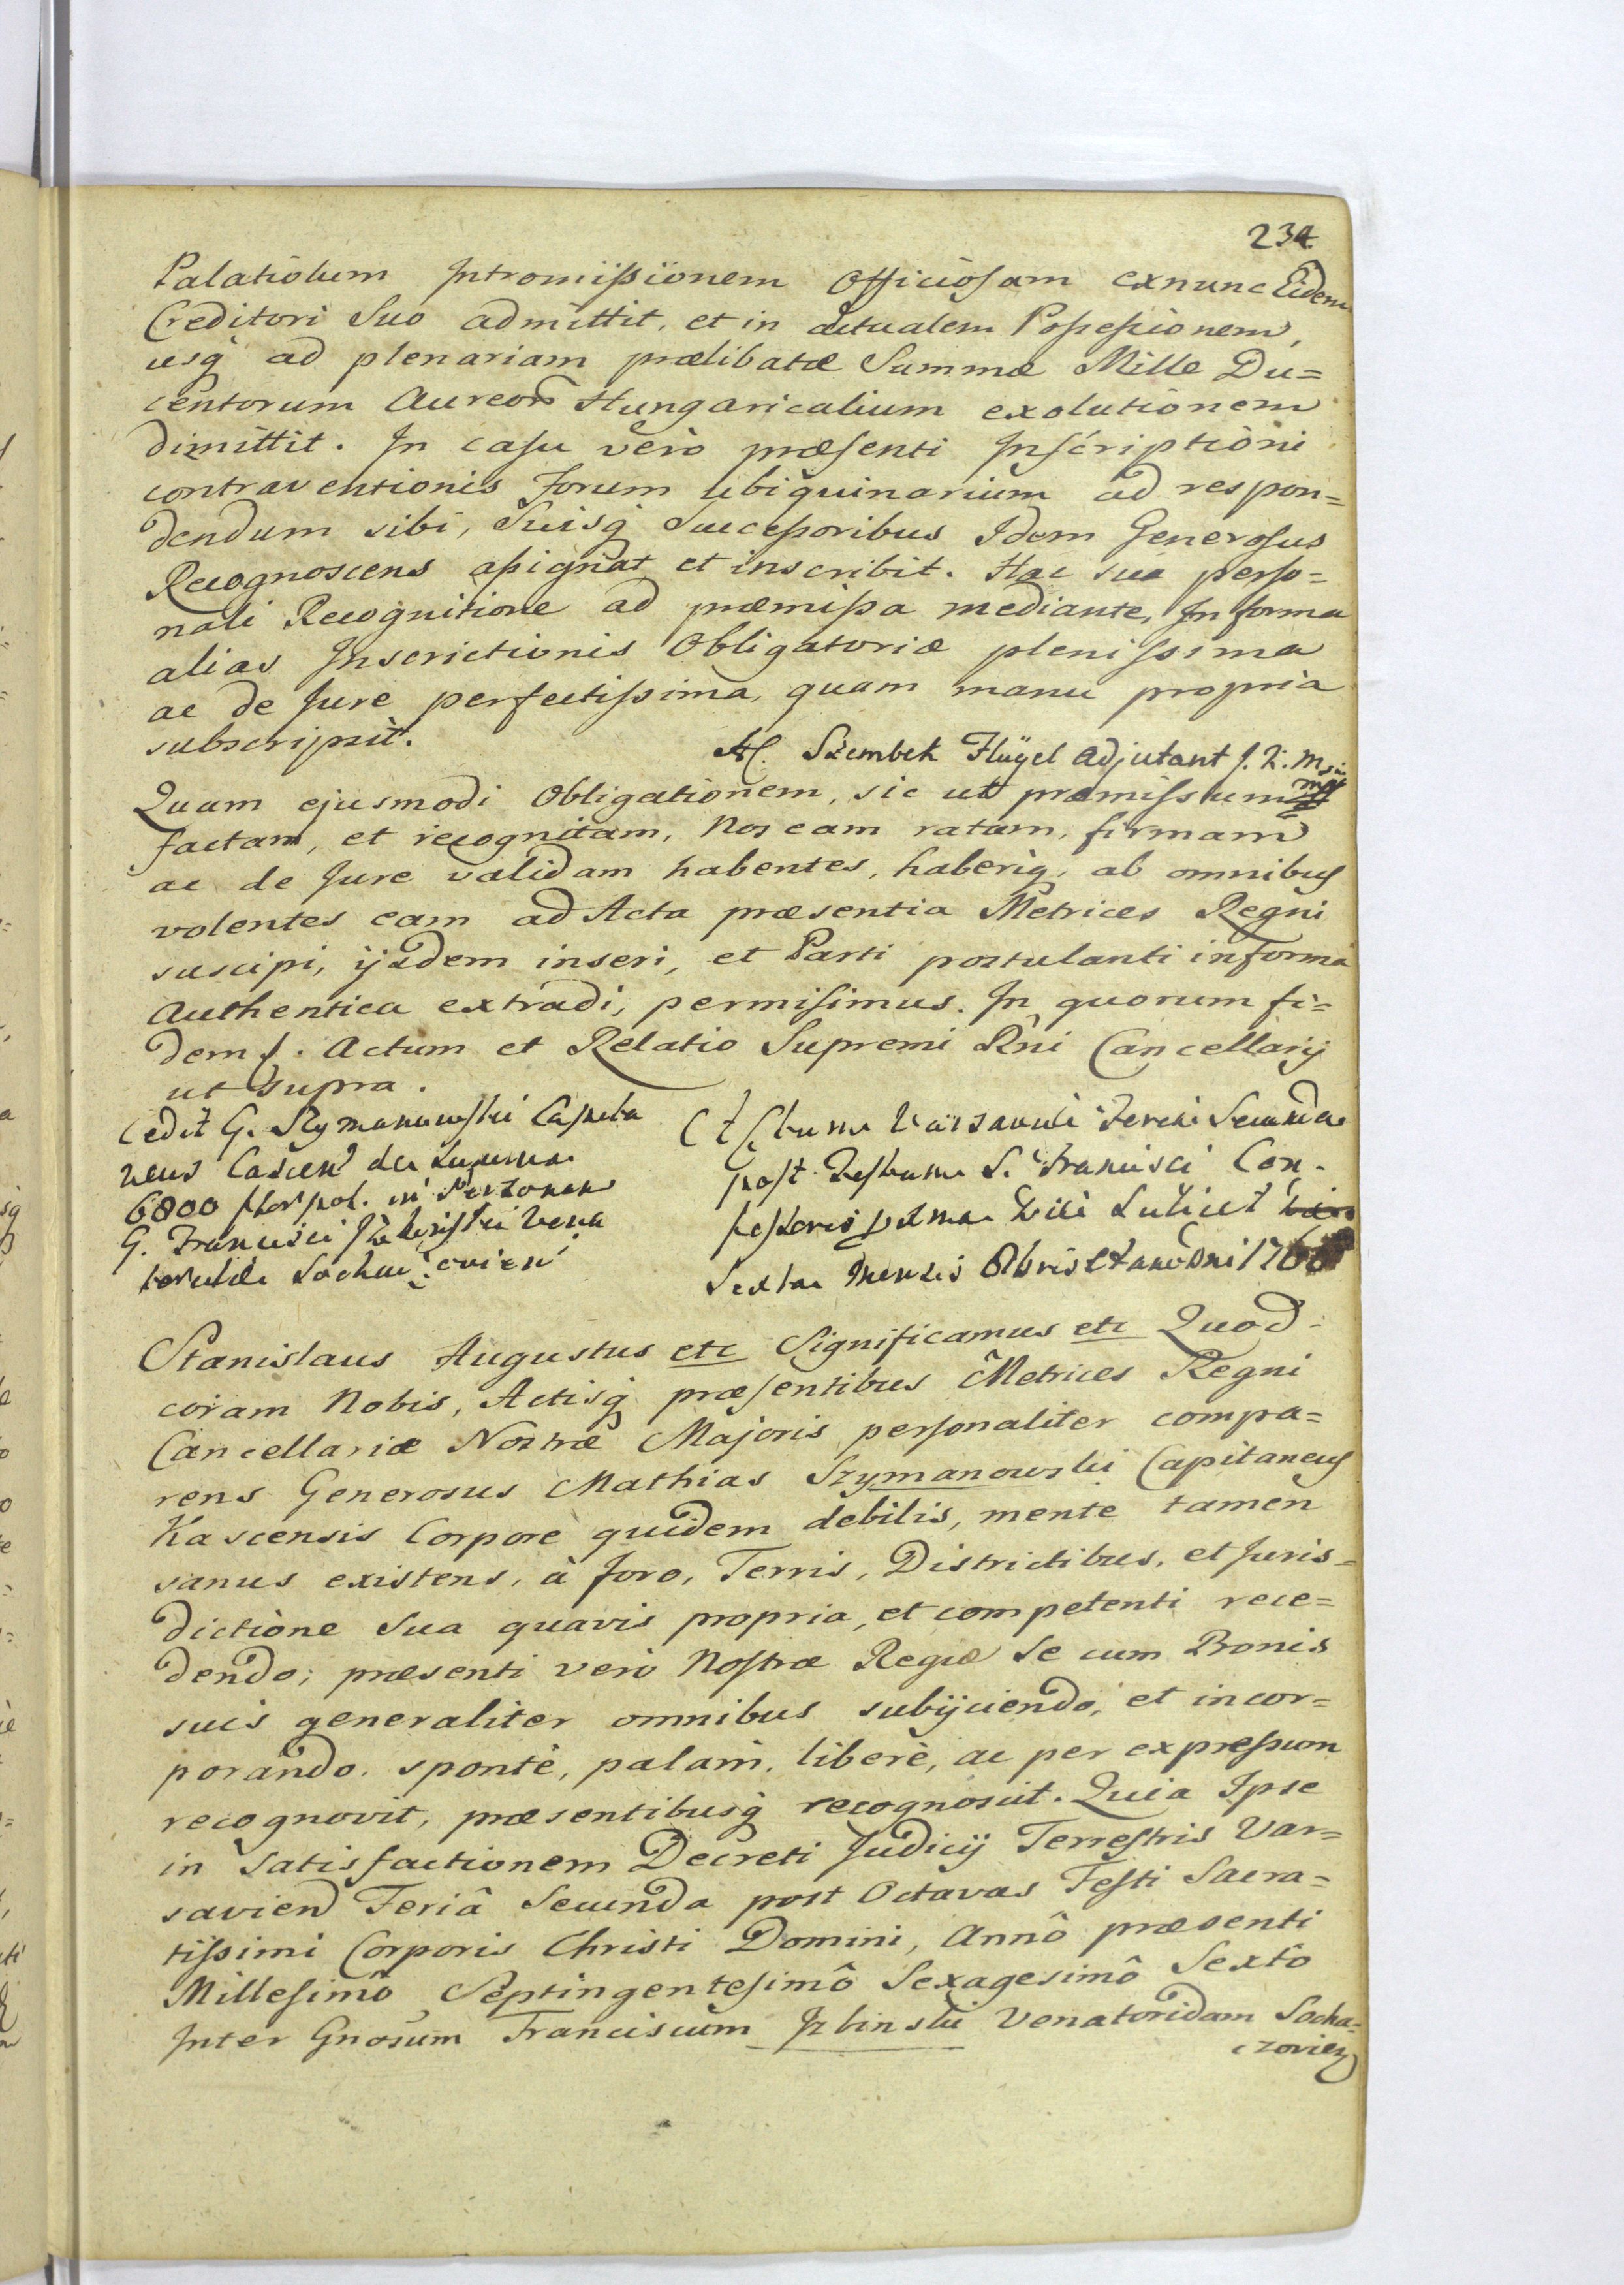 234
Palatiolum Intromissionem Officiosam exnunc Eidem
Creditori Suo admittit, et in actualem Possessionem,
usq; ad plenariam prælibatæ Summæ Mille Du=
centorum Aureor̃ Hungaricalium exolutionem
dimittit. In casu verò præsenti Inscriptioni
contraventionis Forum ubiquinarium ad respon=
dendum sibi, Suisq; Successoribus Idem Generosus
Recognoscens assignat et inscribit. Hac suâ perso=
nali Recognitione ad præmissa mediante, In forma
alias Inscrictionis Obligatoriæ plenissima
ac de Jure perfectissima, quam manu propria
subscripsit.
M. Szembek Flügel Adjutant J. K. Msci
mp
Quam ejusmodi Obligationem, sic ut præmissum
factam, et recognitam, Nos eam ratam, firmam
ac de Jure validam habentes, haberiq; ab omnibus
volentes eam ad Acta præsentia Metrices Regni
suscipi, ijsdem inseri, et Parti postulanti informa
Authentica extradi, permisimus. In quorum fi=
dem. Actum et Relatio Supremi Rñi Cancellarij
ut supra.
Cedit G. Szymanowski Capita
neus Cascen de Summa
6800 flor pol. in Personam
G. Francisci Izbinski Vena
toridæ Sochaczovien
Actum Varsaviæ Feria Secunda
post Festum S. Francisci Con-
fessoris proxima Die Scilicet
Sexta Mensis Octobris Anno Dni 1766
Stanislaus Augustus etc Significamus etc Quod
coram Nobis, Actisq; præsentibus Metrices Regni
Cancellariæ Nostræ Majoris personaliter compa=
rens Generosus Mathias Szymanowski Capitaneus
Kascensis Corpore quidem debilis, mente tamen
sanus existens, à foro, Terris, Districtibus, et Juris=
dictione Sua quavis propria, et competenti rece=
dendo; præsenti verò Nostræ Regiæ Se cum Bonis
suis generaliter omnibus subijciendo, et incor=
porando. spontè, palam, liberè, ac per expressum
recognovit, præsentibusq; recognoscit. Quia Ipse
in Satisfactionem Decreti Judicij Terrestris Var=
savien Feriâ Secunda post Octavas Festi Sacra=
tissimi Corporis Christi Domini, Annô præsenti
Millesimô Septingentesimô Sexagesimô Sextô
Inter Gnosum Franciscum Izbinski Venatoridam Socha=
czovien